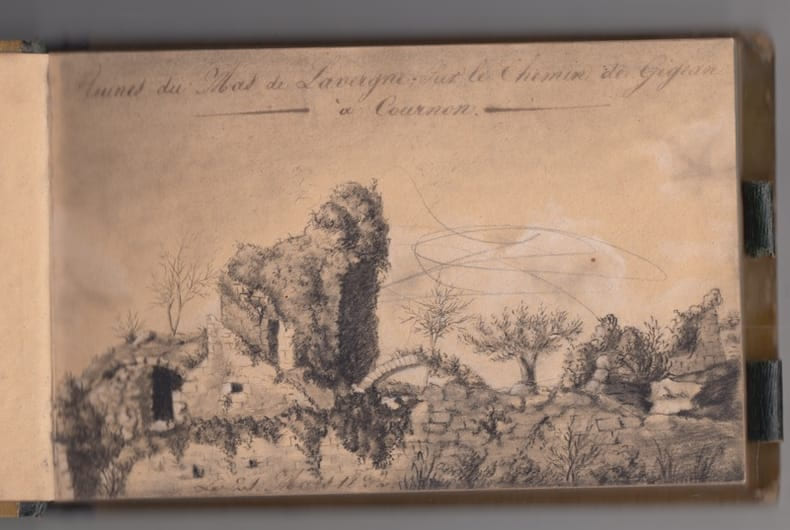 Ruines du Mas de Lavergne, sur le Chemin de Gigean
à Cournon.
Mars